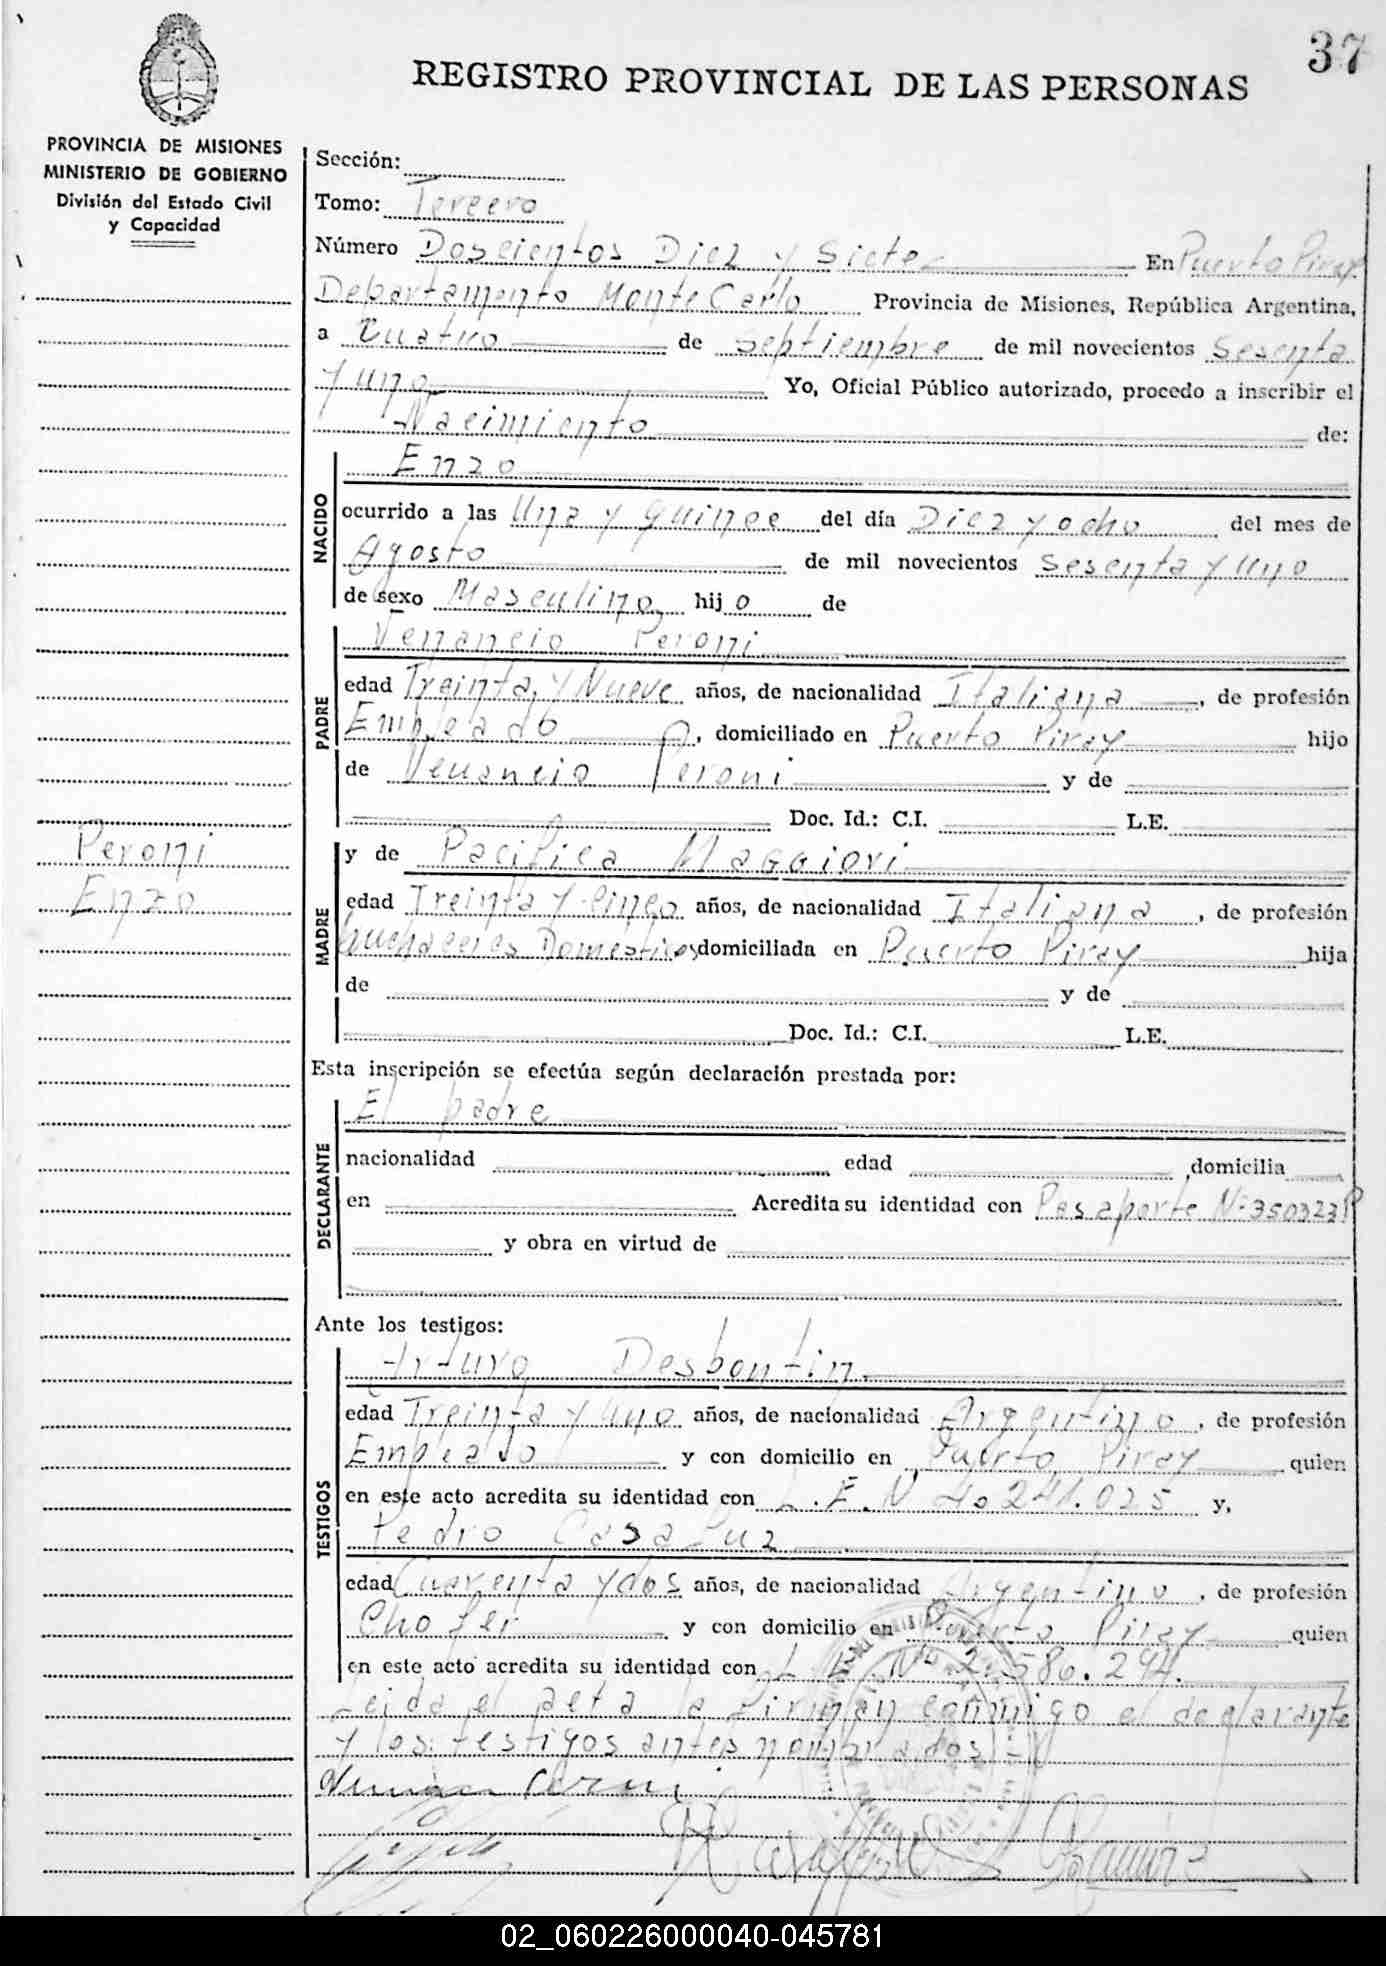 37
REGISTRO PROVINCIAL DE LAS PERSONAS
PROVINCIA DE MISIONES
MINISTERIO DE GOBIERNO
División del Estado Civil
y Capacidad
Sección:
Tomo: Tercero
Número Doscientos Diez y Siete En Puerto Piray
Departamento MonteCarlo Provincia de Misiones, República Argentina,
a Cuatro de Septiembre de mil novecientos Sesenta
y uno Yo, Oficial Público autorizado, procedo a inscribir el
Nacimiento de:
NACIDO
Enzo
ocurrido a las Una y quince del día Diez y ocho del mes de
Agosto de mil novecientos Sesenta y Uno
de sexo Masculino, hijo de
PADRE
Venancio Peroni
edad Treinta y Nueve años, de nacionalidad Italiana, de profesión
Empleado, domiciliado en Puerto Piray hijo
de Venancio Peroni y de
Doc. Id.: C.I. L.E.
Peroni
Enzo
MADRE
y de Pacifica Maggiori
edad Treinta y cinco años, de nacionalidad Italiana, de profesión
Quehaceres Domesticos domiciliada en Puerto Piray hija
de y de
Doc. Id.: C.I. L.E.
Esta inscripción se efectúa según declaración prestada por:
DECLARANTE
El padre
nacionalidad edad domicilia
en Acredita su identidad con Pasaporte Nº 350323P
y obra en virtud de
Ante los testigos:
TESTIGOS
Arturo Desboutin
edad Treinta y Uno años, de nacionalidad Argentino, de profesión
Empleado y con domicilio en Puerto Piray quien
en este acto acredita su identidad con L.E. N 4.241.025 y,
Pedro Casaluz
edad Cuarenta y dos años, de nacionalidad Argentino, de profesión
Chofer y con domicilio en Puerto Piray quien
en este acto acredita su identidad con L.E. Nº 2.580.294.
Leida el acta la firman conmigo el declarante
y los testigos antes nombrados
02_060226000040-045781